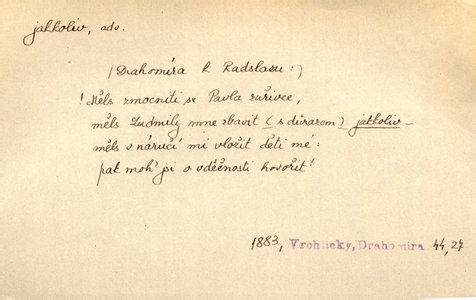 jakkoliv, adv.
(Drahomíra k Radslavu:)
! Měls zmocniti se Pavla zuřivce,
měls Ludmily mne zbavit (s důrazem) jakkoliv –
měls v náručí mi vložit děti mé:
pak moh' jsi o vděčnosti hovořit!
1883, Vrchlický, Drahomíra 44, 27